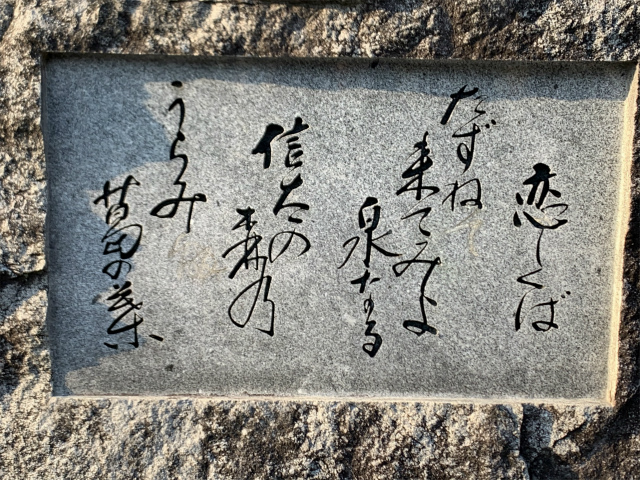 恋しくば
たずねて
来てみよ
泉なる
信太の
森乃
うらみ
葛の葉